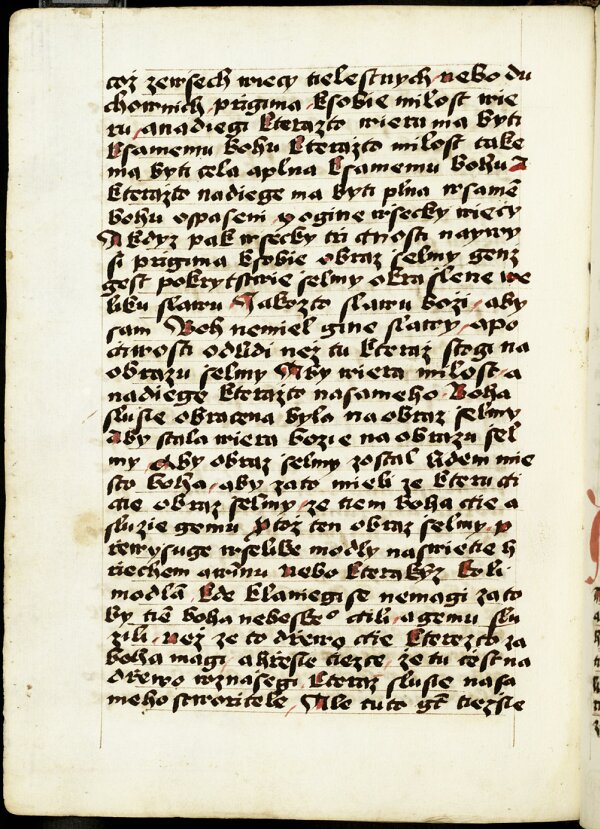 coz zewsech wiecy tielestnych nebo du
chownich prigima ksobie milost wie
ru anadiegi kterazto wiera ma byti
ksamemu bohu kterazto milost take
ma byti cela aplna ksamemu bohu A
kterazto nadiege ma byti plna wsamē
bohu ospaseni y ogine wsecky wiecy
A kdyz pak wsecky tri ctnosti naywy
si prigima ksobie obraz selmy genz
gest pokrytstwie selmy okraslene we
liku slawu Jakozto slawu bozi aby
sam Boh nemiel gine slawy apo
ctiwosti odlidi nez tu kteraz stogi na
obrazu selmy Aby wiera milost a
nadiege kterazto nasameho Boha
slusie obracena byla naobraz selmy
Aby stala wiera bozie na obrazu sel
my Aby obraz selmy zostal lidem mie
sto boha aby zato mieli ze kteru cti
ctie obraz selmy ze tiem boha ctie a
sluzie gemu Protoz ten obraz selmy p
rewysuge wselike modly naswietie h
riechem awinu nebo kterakyz koli
modlā kde klaniegi se nemagi zato
by tiē boha nebeskeº ctili agemu slu
zili nez ze to drewo ctie kterezto za
boha magi ahresie tiezce ze tu cest na
drewo wznasegi kteraz slusie nasa
meho stworitele Ale tuto gt tiezsie